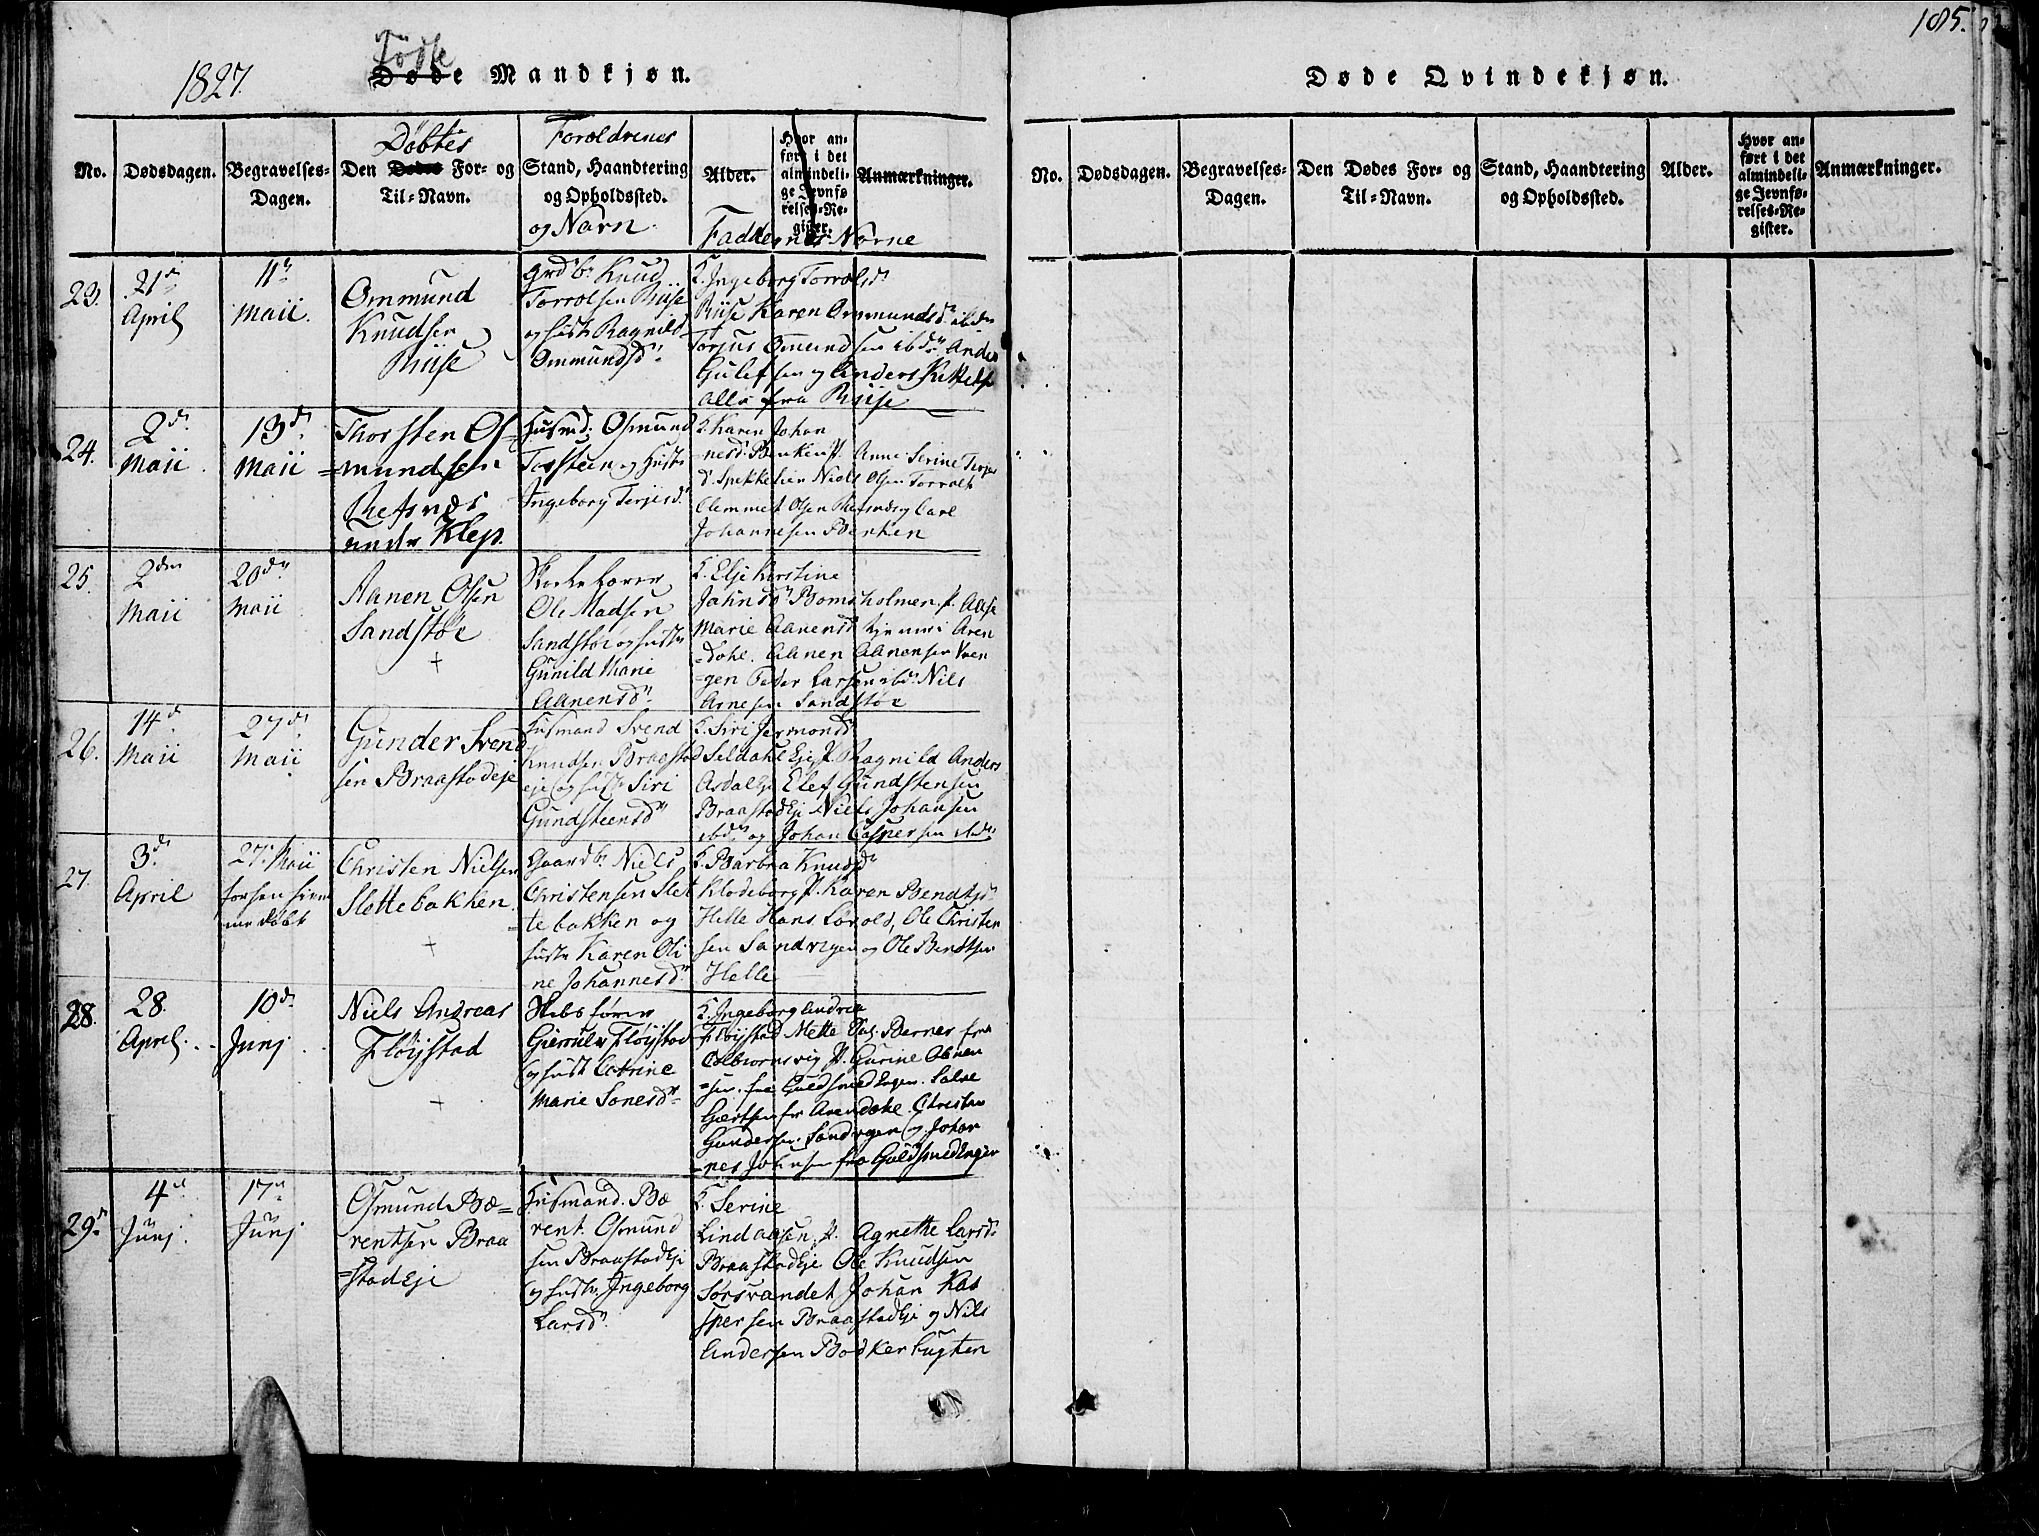 1827.
Fødte
Døde Mandkjøn.
No.
Dødsdagen.
Begravelses-
Dagen.
Døbtes
Den Dødes For- og
Til-Navn.
Foroldrenes
Stand, Haandtering
og Opholdssted.
og Navn.
Alder.
Hvor an-
ført i det
almindeli-
ge Jevnfø-
relses-Re-
gister.
Anmærkninger.
Faddernes Navne
23.
21de
April
11te
Maii.
Ommund
Knudsen
Riise
Grdbr Knud
Torrolsen Riise
og Hust. Ragnild
Ommundsdr
K. Ingeborg Torrolsdr
Riise Karen Ommundsdr ibdm
Torjus Omundsen ibdm Anders
Gulefsen og Anders Kittels
alle fra Riise
24.
2den
Maii
13de
Maii
Thorsten Os-
=mundsen
Refsnæs
under Klep.
Husmd. Osmund
Torsteen og Hust
Ingeborg Terjesdr
K. Karen Johan
=nesd. Benken P. Anne Serine Terjes
d. Spekkelien Niels Olsen Torrolt
Clemmet Olsen Refsnæs og Carl
Johannesen Benken
25.
2den
Maii
20de
Maii
Aanen Olsen
Sandstøe
+
Ole Madsen
Sandstøe og Hustr
Gunild Marie
Aanensdr
K. Elje Kirstine
Jahnsdr Bomsholmen. P. Aase
Marie Aanensd tjenner i Aren
=dahl. Aanen Aanonsen Vren
=gen Peder Larsen ibd. Nils
Arnesen Sandstøe
26.
14de
Maii
27de
Maii
Gunder Svend
sen Braastadeje
Husmand Svend
Knudsen Braastad
eje og Hustr Siri
Gundsteensdr
K. Siri Jermondsd
Seldahl Eje P. Ragnild Anders
Asdal Eje Elef Gundstensen
Braastad Eje Niels Johansen
ibdm og Johan Caspersen ibdm
27.
3de
April
27. Maii
forhen hjem
me døbt
Christen Nielsen
Slettebakken.
+
Gaardbr Niels
Christensen Slet
tebakken og
Hustr Karen Oli
ne Johannesdr
K. Barbra Knudsdr
Klodeborg P. Karen Bendtsdr
Helle Hans Løvold, Ole Christen
sen Sandvigen og Ole Bendtsen
Helle
28.
28.
April
10de
Junj
Niels Andreas
Fløystad
+
Skibsfører
Gierulv Fløystad
og Hust Catrine
Marie Sonesdr
K. Ingeborg Andrea
Fløystad Mette Bernes fra
Colbiornsvig P. Gurine Abnen
fra Guldsmed Engen. Salve
Giertsen fr Arendahl. Christen
Gundersen. Sandvigen og Johan
=nes Johnsen fra Guldsmedengen
29.
4de
Junj.
17de
Junj
Osmund Bæ=
rentsen Braa
=stadEje
Husmand. Bæ
rent. Osmund
sen BraastadEje
og Hustr. Ingeborg
Larsdr.
K. Serine
Lindaasen, P. Agnethe Larsd.
BraastadEje Ole Knudsen
Sørsvandet Johan Kas
spersen BraastadEje og Nils
Andersen Bødkerbugten
185.
Døde Qvindekjøn.
No.
Dødsdagen.
Begravelses-
Dagen.
Den Dødes For- og
Til-Navn.
Stand, Haandtering
og Opholdssted.
Alder.
Hvor an-
ført i det
almindeli-
ge Jevnfø-
relses-Re-
gister.
Anmærkninger.